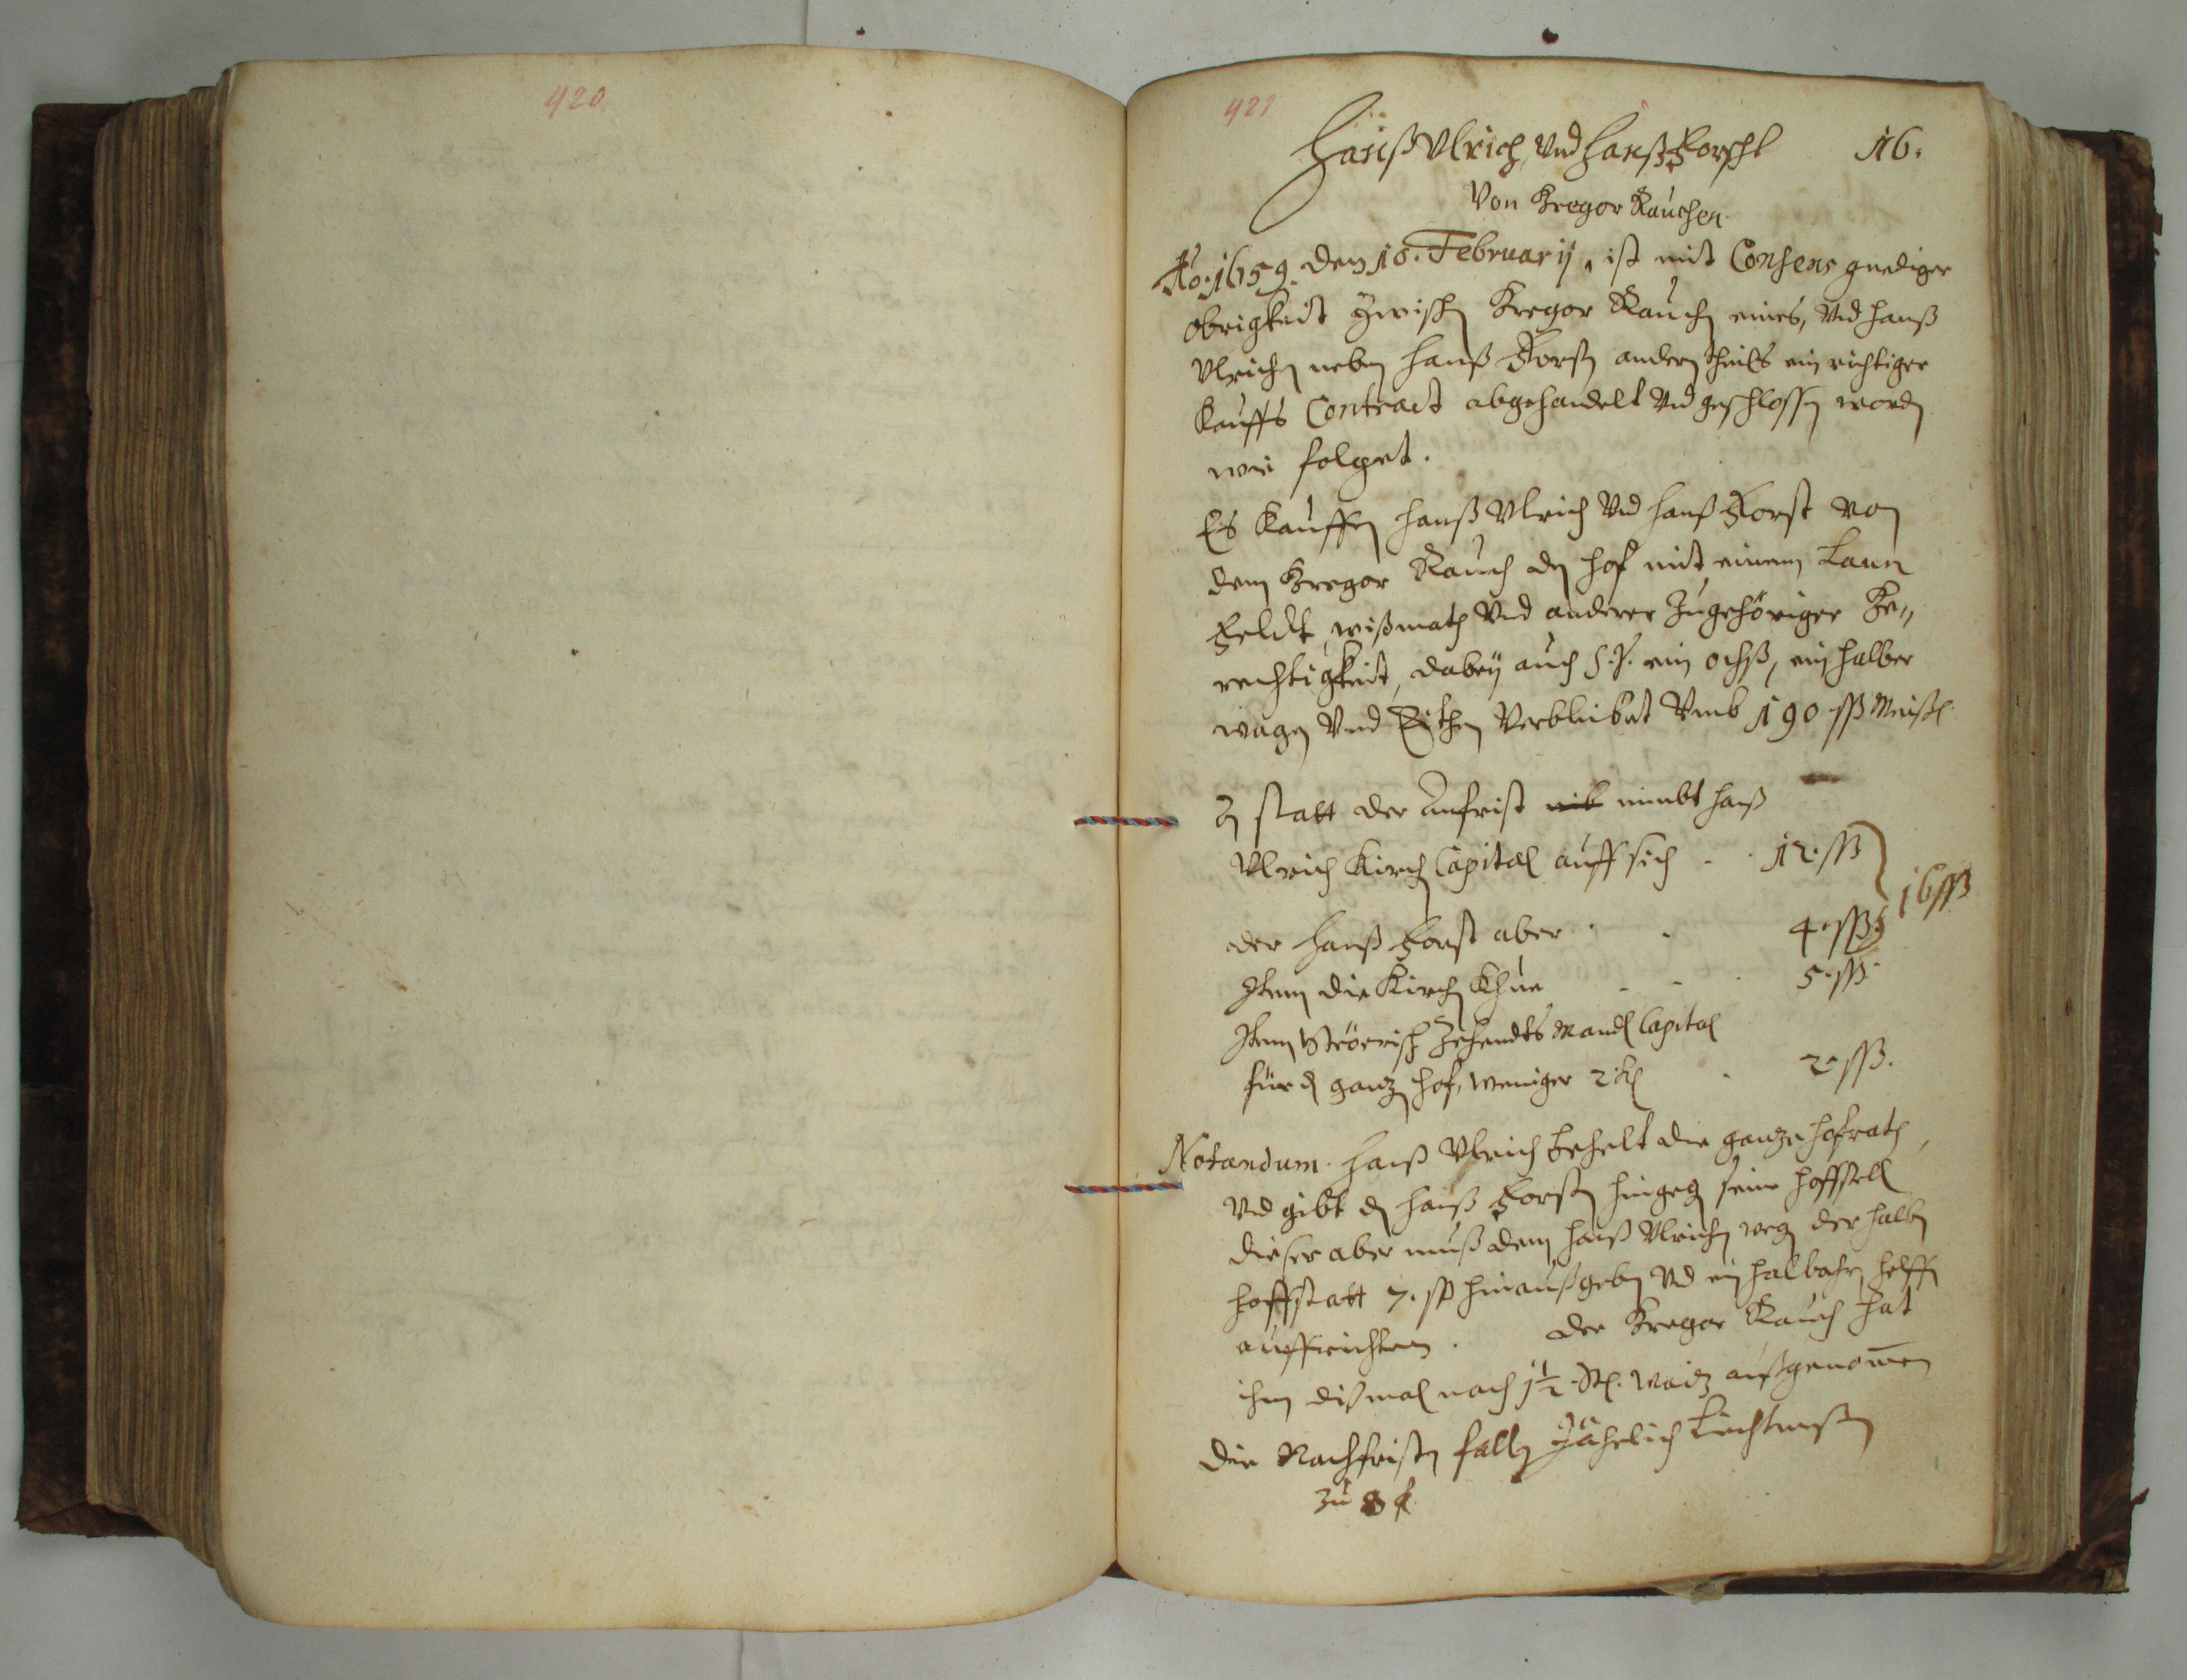 420
421
Hanß Vlrich, Vnd Hanß Forscht 16.
Von Gregor Rauchen
Ao. 1659. den 18. Februarij, ist mit Consens gnediger
Obrigkeit Zwischen Gregor Rauchen eines, Vnd Hanß
Vlrichen neben Hanß Forsten andern theils ein richtiger
Kauffs Contract abgehandelt Vnd geschlossen worden
wie folget.
Es Kauffen Hanß Vlrich Vnd Hanß Forst von
dem Gregor Rauch den hof mit einem Laan
Feldt, wißmath Vnd anderer Zugehöriger Ge„
rechtigkeit, dabey auch S. V. ein ochß, ein halber
wagen Vnd Eithen Verbleibet Vmb 190 ßß Meißl.
In statt der Anfrist nimbt Hanß
Vlrich Kirchen Capital auff sich . . 12. ßß
16 ßß
der Hanß Forst aber . . 4. ßß
Item die Kirchen Khue . . . 5. ßß.
Item Zehendts Mandl Capital
für den ganzen hof, weniger 2 kr . 2. ßß.
Notandum. Hanß Vlrich behelt die ganze hofrath,
Vnd gibt den Hanß Forsten hingegen seine hoffstell
dieser aber muß dem Hanß Vlrichen wegen der halben
hoffstatt 7. ßß hinauß geben Vnd ein helffen
auffrichten. der Gregor Rauch hat
ihm dißmal noch 1½ Waitz außgenommen
Die Nachfristen fallen Jährlich Liechtmeßen
zu 8 f.